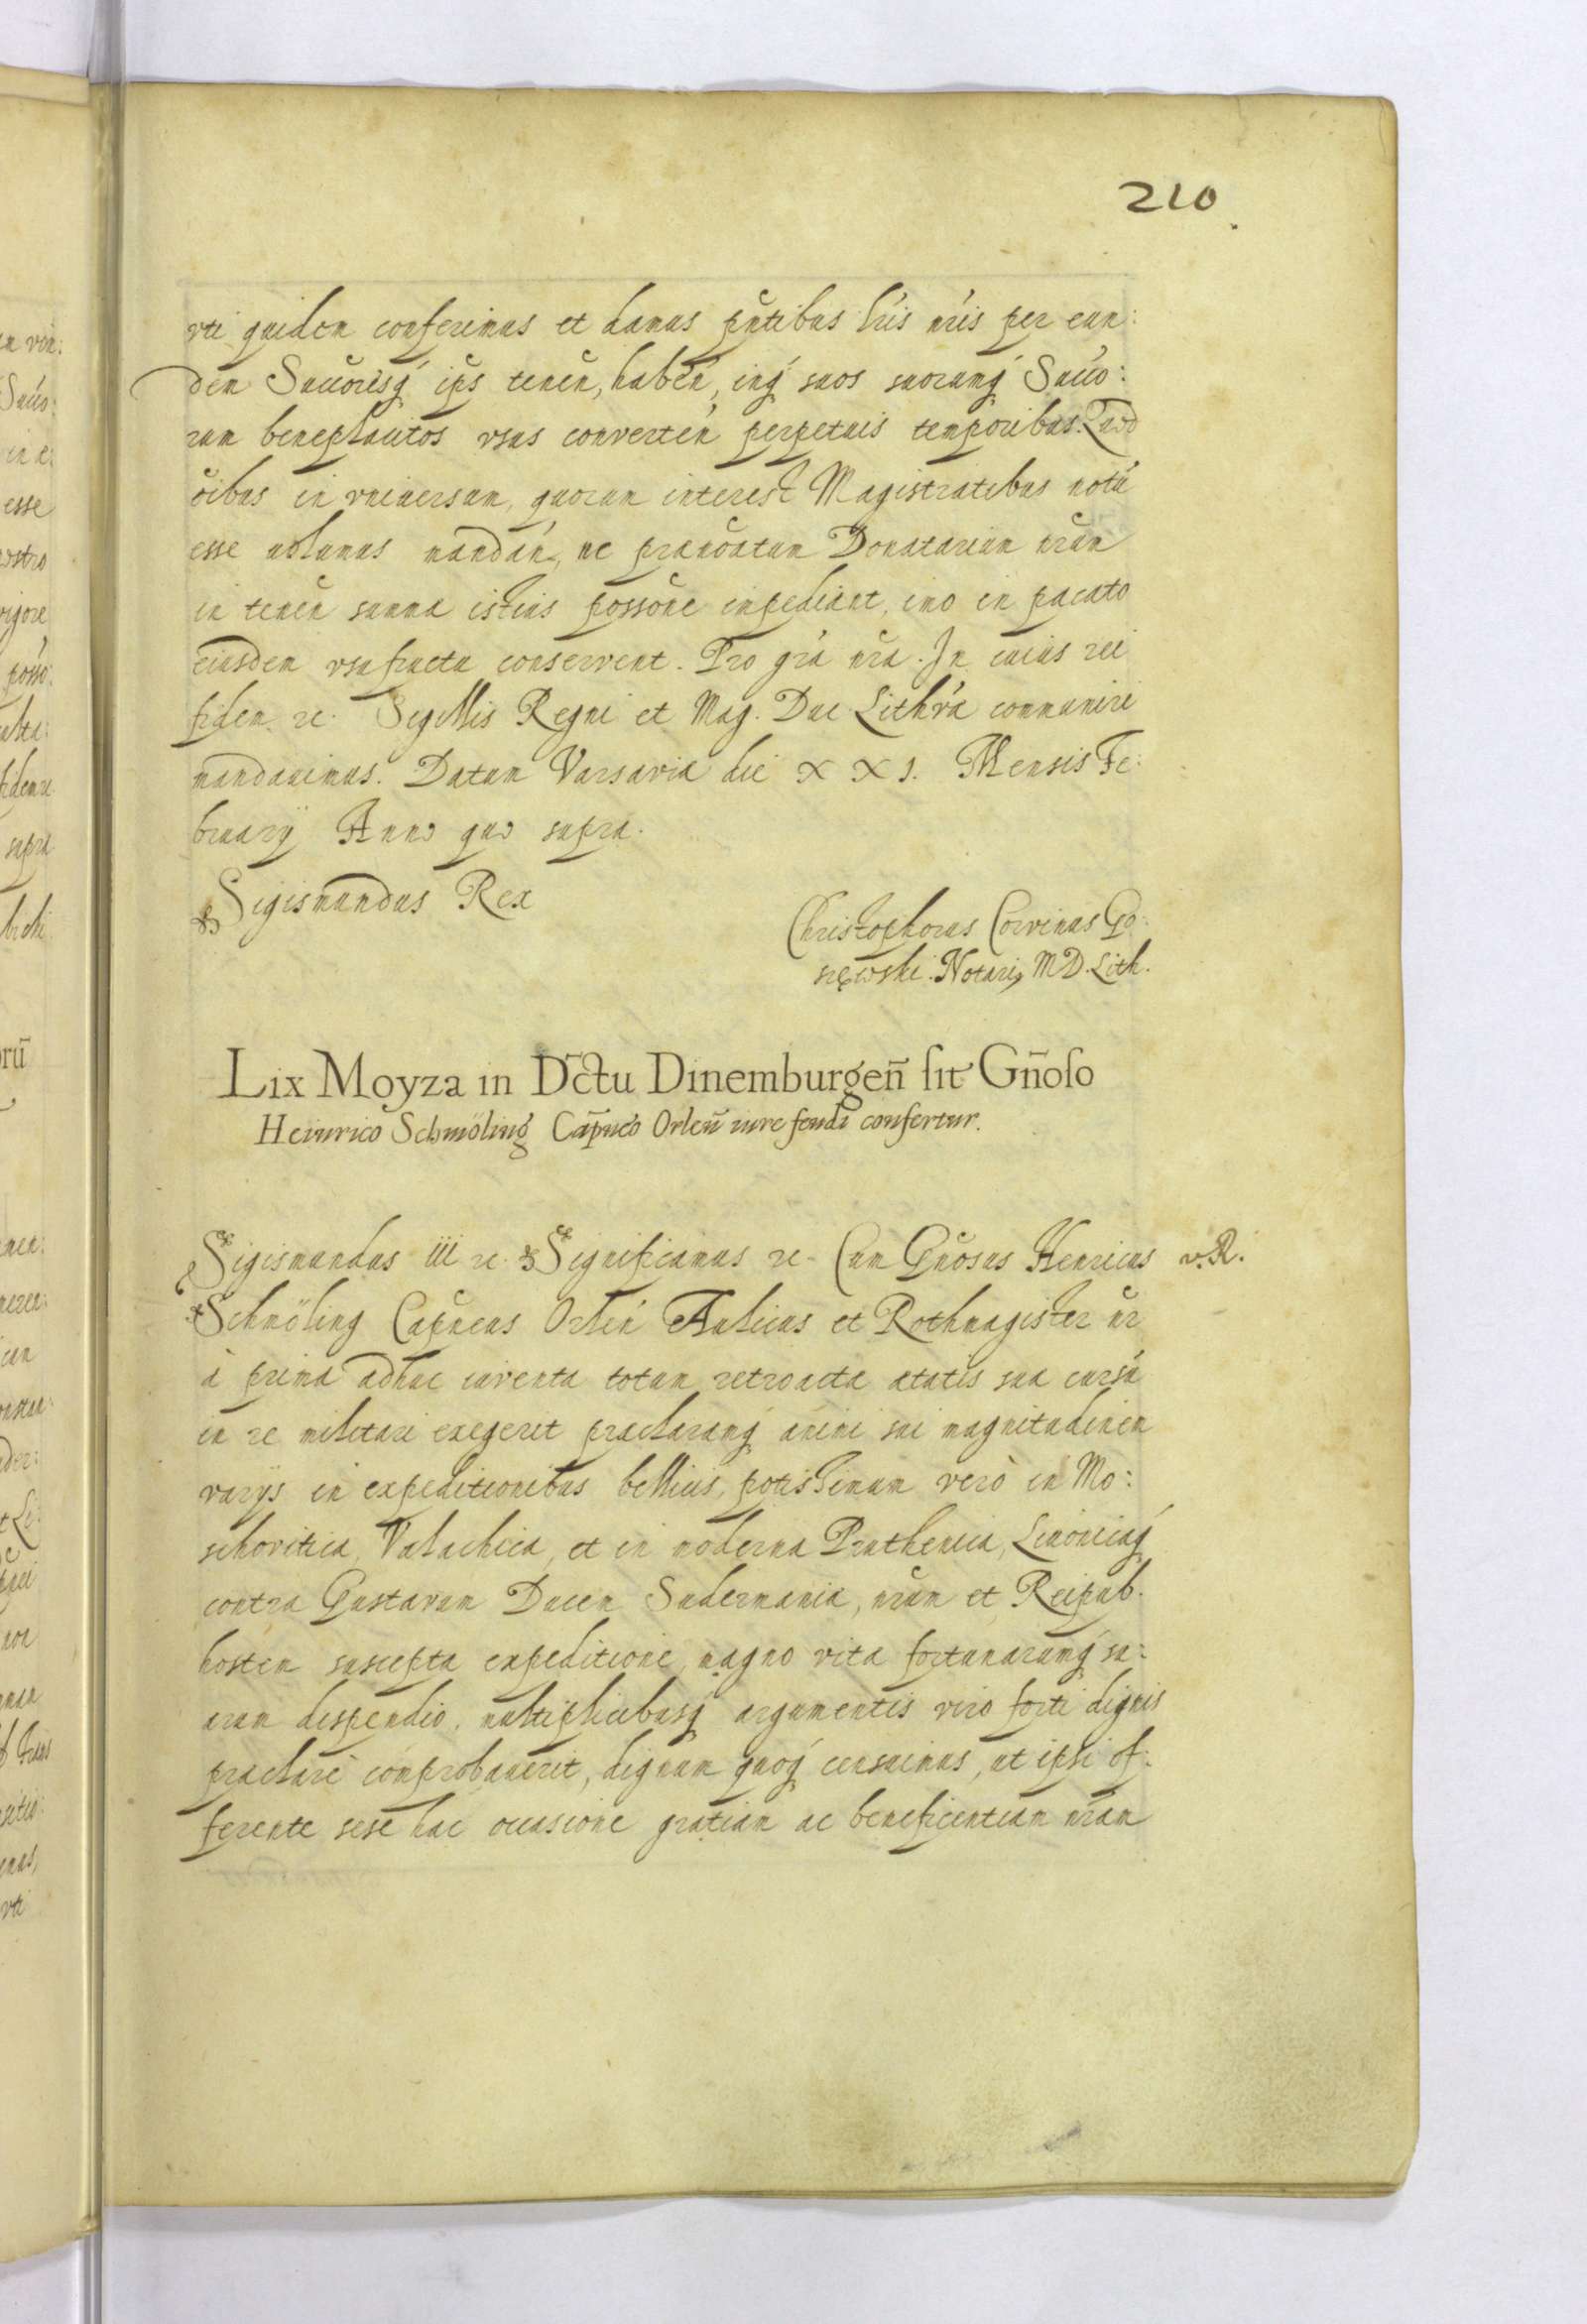 210
vti quidem conferimus et damus pñtibus lr̃is nr̃is per eun:
dem Succoresq́ ip̃s teneñ, habeñ, inq́ suos suorumq́ Succo:
rum beneplacitos vsus converteñ perpetuis temporibus. Quod
õibus in vniuersum, quorum interest Magistratibus notũ
esse uolumus mandañ, ne praenõatum Donatarium nr̃um
in teneñ summa istius possõne impediant, imo in pacato
eiusdem vsufructu conservent. Pro gr̃a nr̃a. In cuius rei
fidem ꝛc. Sigillis Regni et Mag. Duc. Lithũa communiri
mandauimus. Datum Varsavia die XXI. Mensis Fe:
bruarij Anno quo supra.
Sigismundus Rex
Christophorus Corvinus Go:
sięwski. Notariꝯ MD. Lith.
Lix Moyza in Dc̃tu Dinemburgeñ sit Gñoso
Heinrico Schmöling Cap̃neo Orleñ iure feudi confertur.
Sigismundus iii ꝛc. Significamus ꝛc. Cum Gñosus Henricus v.R.
Schmöling Cap̃neus Orleñ Aulicus et Rothmagister nr̃
à prima adhuc iuventa totum retroacta ætatis sua cursũ
in re militari exegerit praeclaramq́ animi sui magnitudinem
varijs in expeditionibus bellicis, potissimum verò in Mo:
schovitica, Valachica, et in moderna Pruthenica, Liuonicaq́
contra Gustavum Ducem Sudermania, nr̃um et Reipub.
hostem suscepta expeditione, magno vita fortunarumq́ su:
arum dispendio, multiplicibusq́ argumentis viro forti dignis
praeclarè comprobauerit, dignum quoq́ censuimus, ut ipsi of:
ferente sese hac occasione gratiam ac beneficentiam nr̃am